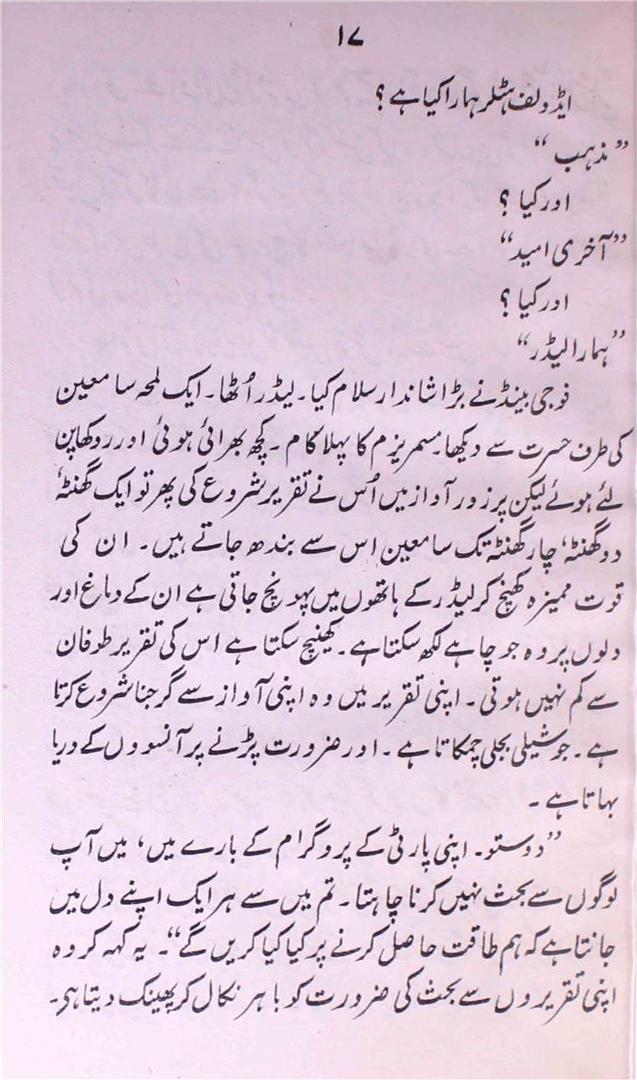 ۱۷
ایڈولف ہٹلر ہمارا کیا ہے ؟
”مذہب“
اور کیا ؟
”آخری امید“
اور کیا ؟
”ہمارا لیڈر“
فوجی بینڈ نے بڑا شاندار سلام کیا ۔ لیڈر اُٹھا ۔ ایک لمحہ سامعین
کی طرف حسرت سے دیکھا۔ مسمریزم کا پہلا کام ۔ کچھ بھرائی ہوئی اور روکھا پن
لئے ہوئے لیکن پر زور آواز میں اُس نے تقریر شروع کی پھر تو ایک گھنٹہ‘
دو گھنٹہ‘ چار گھنٹہ تک سامعین اس سے بندھ جاتے ہیں ۔ ان کی
قوت ممیزہ کھنچ کر لیڈر کے ہاتھوں میں پہونچ جاتی ہے ان کے دماغ اور
دلوں پر وہ جو چاہے لکھ سکتا ہے ۔ کھینچ سکتا ہے اس کی تقریر طوفان
سے کم نہیں ہوتی ۔ اپنی تقریر میں وہ اپنی آواز سے گرجنا شروع کرتا
ہے ۔ جوشیلی بجلی چمکاتا ہے ۔ اور ضرورت پڑنے پر آنسوؤں کے دریا
بہاتا ہے ۔
”دوستو ۔ اپنی پارٹی کے پروگرام کے بارے میں‘ میں آپ
لوگوں سے بحث نہیں کرنا چاہتا ۔ تم میں سے ہر ایک اپنے دل میں
جانتا ہے کہ ہم طاقت حاصل کرنے پر کیا کیا کریں گے“۔ یہ کہہ کر وہ
اپنی تقریروں سے بحث کی ضرورت کو باہر نکال کر پھینک دیتا ہی۔